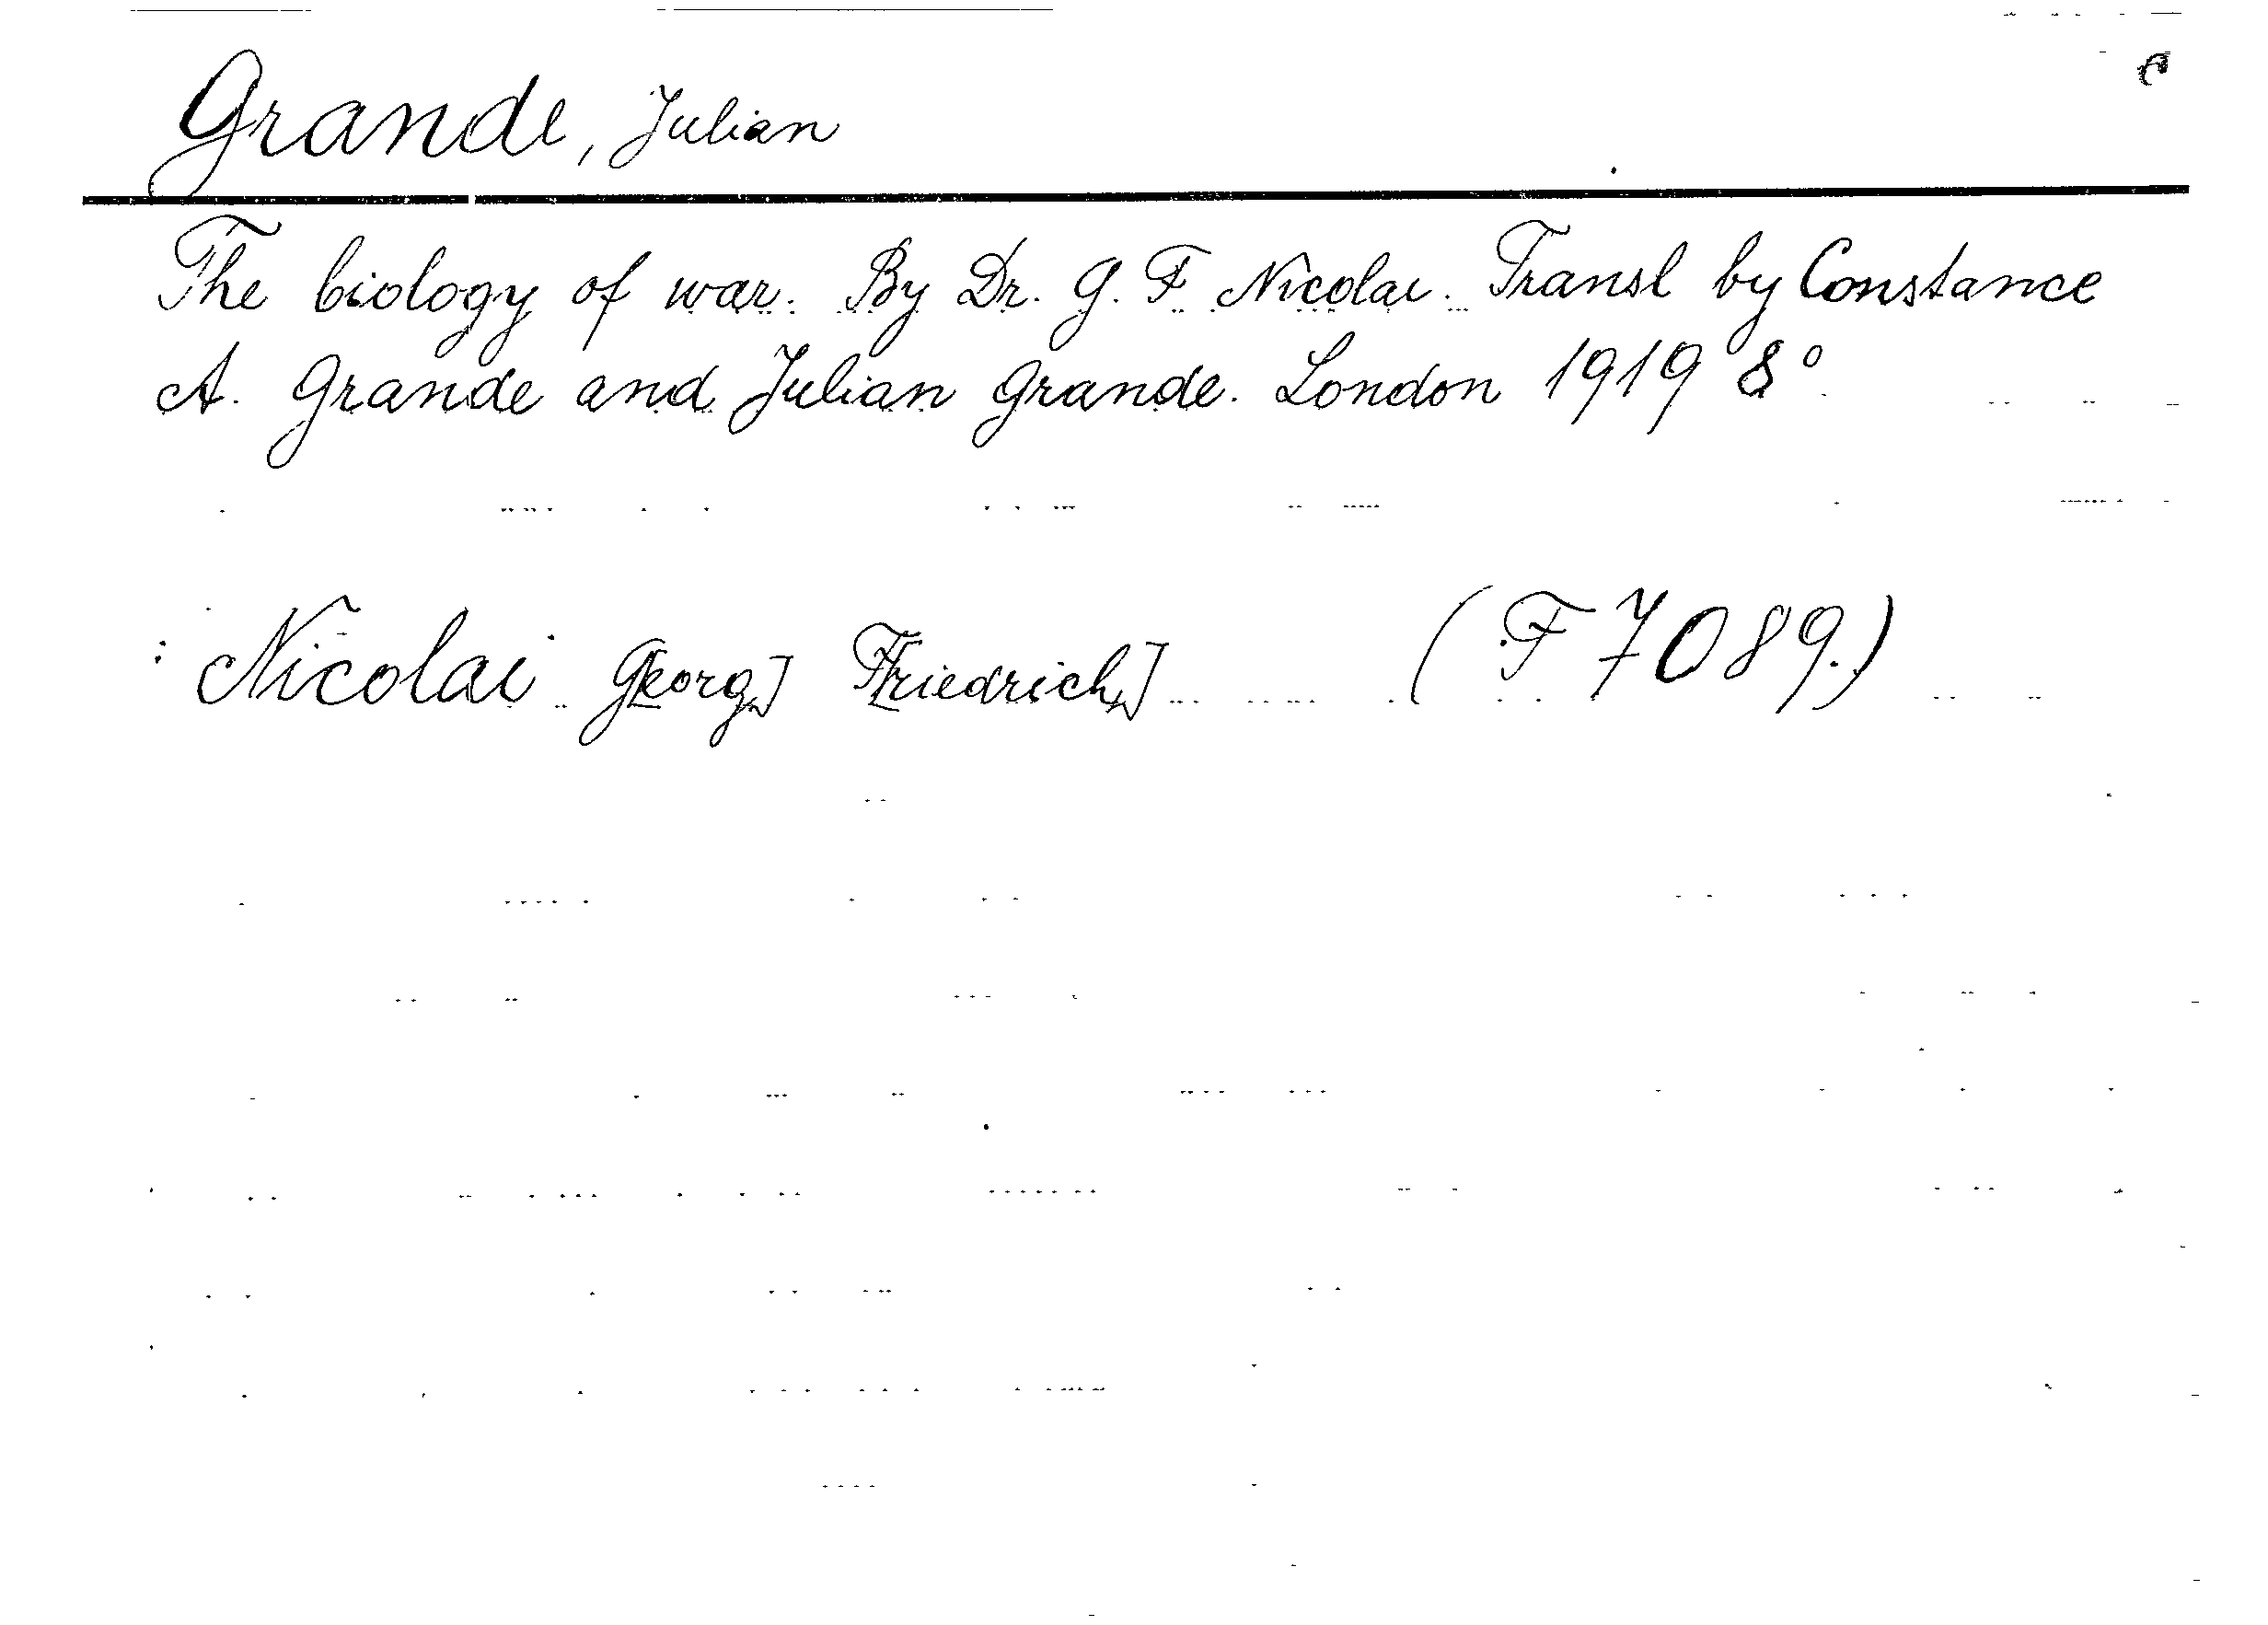 Grande, Julian
The biology of war. By Dr. G. F. Nicolai. Transl by Constance
A. Grande and Julian Grande. London 1919 8°
: Nicolai G[eorg] F[riedrich] (F 7089.)